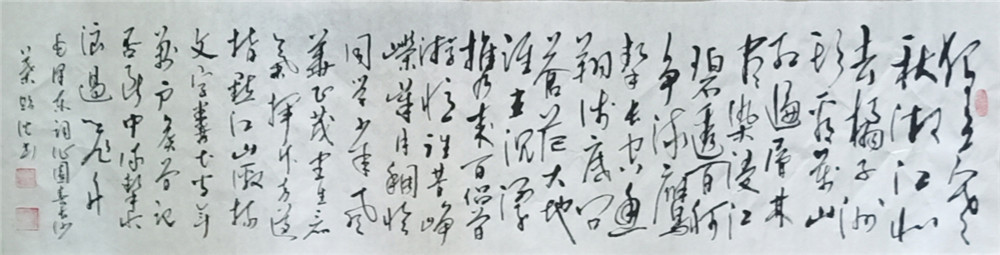 独立寒
秋湘江北
去橘子洲
头看万山
红遍层林
尽染漫江
碧透百舸
争流鹰
击长空鱼
翔浅底问
苍茫大地
谁主沉浮
携来百侣曾
游忆往昔峥
嵘岁月稠恰
同学少年风
华正茂书生意
气挥斥方遒
指点江山激扬
文字粪土当年
万户侯曾记
否到中流击水
浪遏飞舟
毛泽东词沁园春长沙